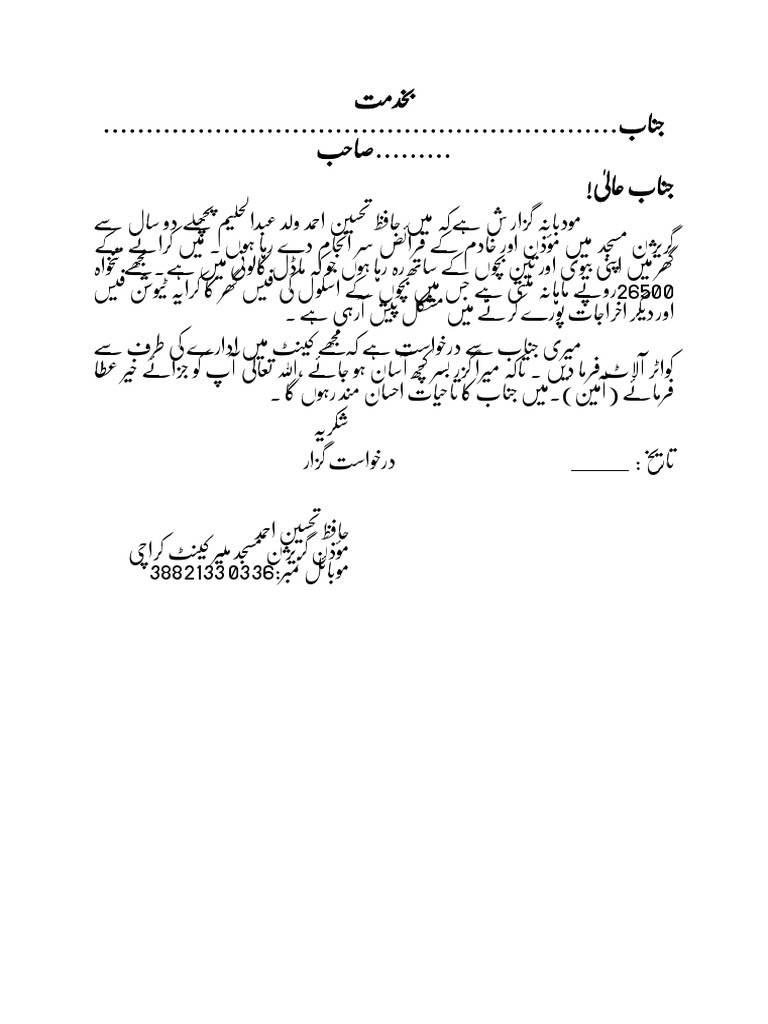 بخدمت
جناب............................................................
.........صاحب
جناب عالیٰ!
مودبانہ گزارش ہے کہ میں حافظ تحسین احمد ولد عبدالحلیم پچھلے دو سال سے
گریژن مسجد میں مؤذن اور خادم کے فرائض سر انجام دے رہا ہوں ۔ میں کرائے کے
گھر میں اپنی بیوی اور تین بچوں کے ساتھ رہ رہا ہوں جو کہ ماڈل کالونی میں ہے۔ مجھے تنخواہ
26500روپے ماہانہ ملتی ہے جس میں بچوں کے اسکول کی فیس گھر کا کرایہ ٹیوشن فیس
اور دیگر اخراجات پورے کرنے میں مشکل پیش آرہی ہے ۔
میری جناب سے درخواست ہے کہ مجھے کینٹ میں ادارے کی طرف سے
کواٹر آلاٹ فرما دیں ۔ تاکہ میرا گزر بسر کچھ آسان ہو جائے ،اللہ تعالی آپ کو جزائے خیر عطا
فرمائے (آمین)۔میں جناب کا تاحیات احسان مند رہوں گا ۔
شکریہ
تاریخ : _____ درخواست گزار
حافظ تحسین احمد
مؤذن گریژن مسجد ملیر کینٹ کراچی
موبائل نمبر:0336 3882133